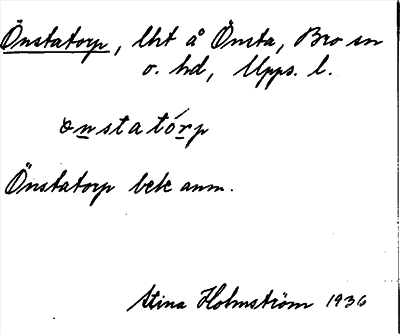 Önstatorp, lht å Önsta, Bro sn
o. hd, Upps. l.
ɷnstatórp
Önstatorp bebe anm.
Stina Holmström 1936